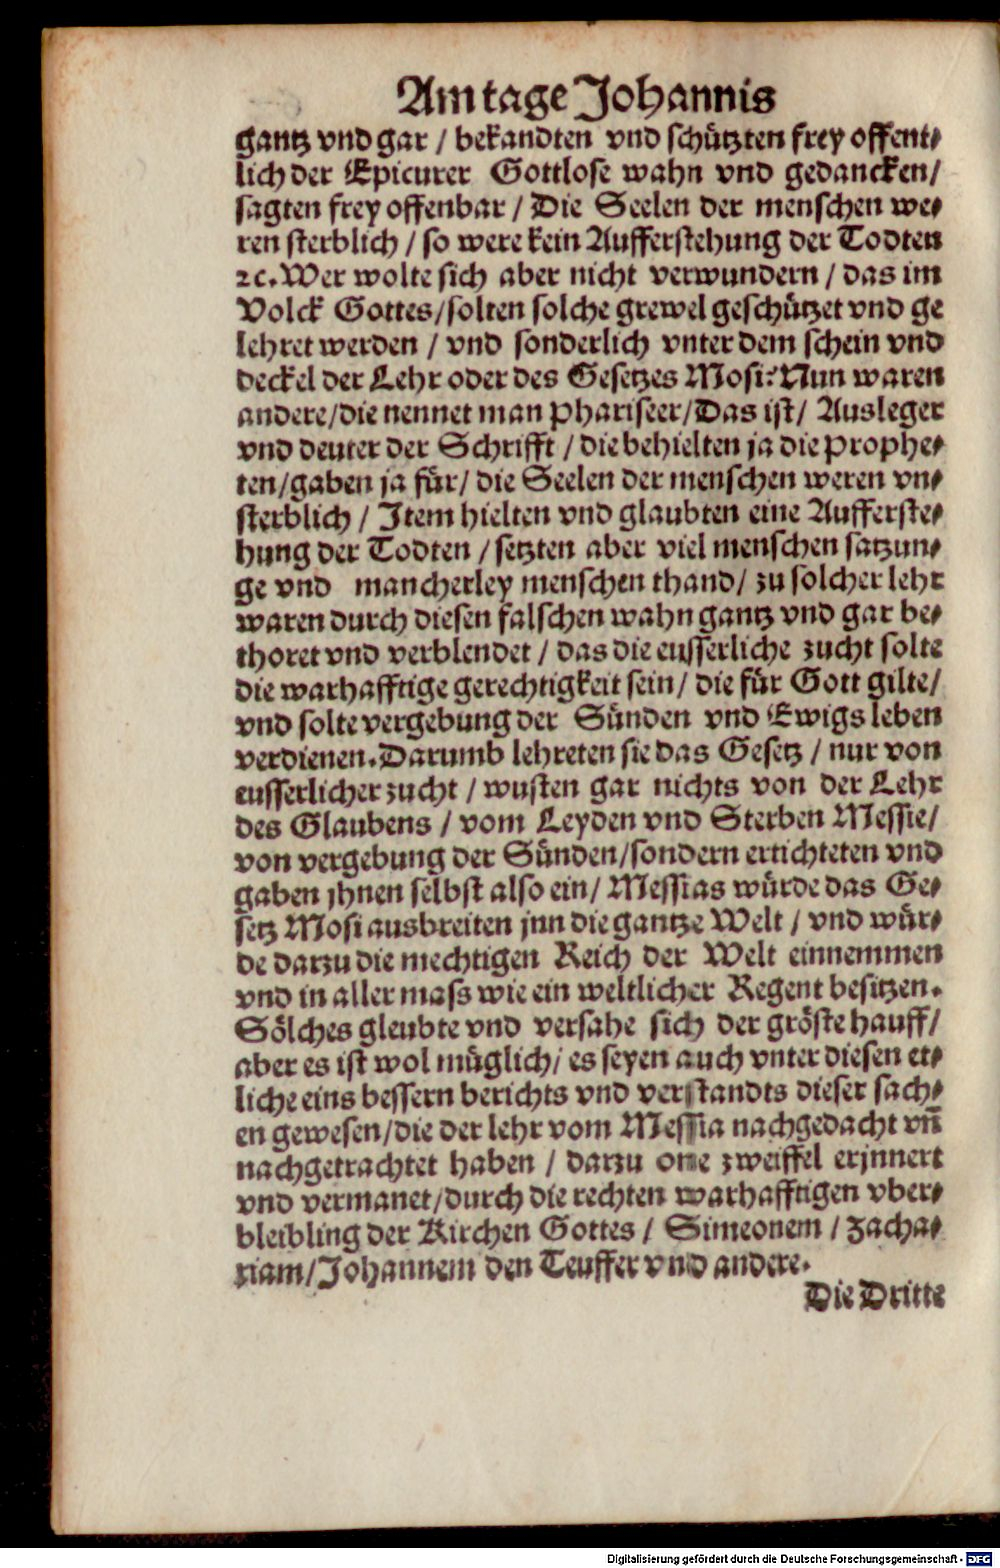 Am tage Johannis
gantz vnd gar / bekandten vnd schützten frey offent⸗
lich der Epicurer Gottlose wahn vnd gedancken/
sagten frey offenbar / Die Seelen der menschen we⸗
ren sterblich / so were kein Aufferstehung der Todten
ꝛc. Wer wolte sich aber nicht verwundern / das im
Volck Gottes/solten solche grewel geschützet vnd ge
lehret werden / vnd sonderlich vnter dem schein vnd
deckel der Lehr oder des Gesetzes Mosi? Nun waren
andere/die nennet man Phariseer/Das ist/ Ausleger
vnd deuter der Schrifft / die behielten ja die Prophe⸗
ten/gaben ja für/ die Seelen der menschen weren vn⸗
sterblich / Item hielten vnd glaubten eine Aufferste⸗
hung der Todten / setzten aber viel menschen satzun⸗
ge vnd mancherley menschen thand/ zu solcher lehr
waren durch diesen falschen wahn gantz vnd gar be⸗
thoret vnd verblendet / das die eusserliche zucht solte
die warhafftige gerechtigkeit sein/ die für Gott gilte/
vnd solte vergebung der Sünden vnd Ewigs leben
verdienen. Darumb lehreten sie das Gesetz / nur von
eusserlicher zucht / wusten gar nichts von der Lehr
des Glaubens / vom Leyden vnd Sterben Messie/
von vergebung der Sünden/sondern ertichteten vnd
gaben jhnen selbst also ein/ Messias würde das Ge⸗
setz Mosi ausbreiten jnn die gantze Welt / vnd wür⸗
de darzu die mechtigen Reich der Welt einnemmen
vnd in aller mass wie ein weltlicher Regent besitzen.
Sölches gleubte vnd versahe sich der gröste hauff/
aber es ist wol müglich/ es seyen auch vnter diesen et⸗
liche eins bessern berichts vnd verstandts dieser sach⸗
en gewesen/die der lehr vom Messia nachgedacht vñ
nachgetrachtet haben / darzu one zweiffel erjnnert
vnd vermanet/durch die rechten warhafftigen vber⸗
bleibling der Kirchen Gottes / Simeonem / Zacha⸗
riam/Johannem den Teuffer vnd andere.
Die Dritte
Digitalisierung gefördert durch die Deutsche Forschungsgemeinschaft - DFG